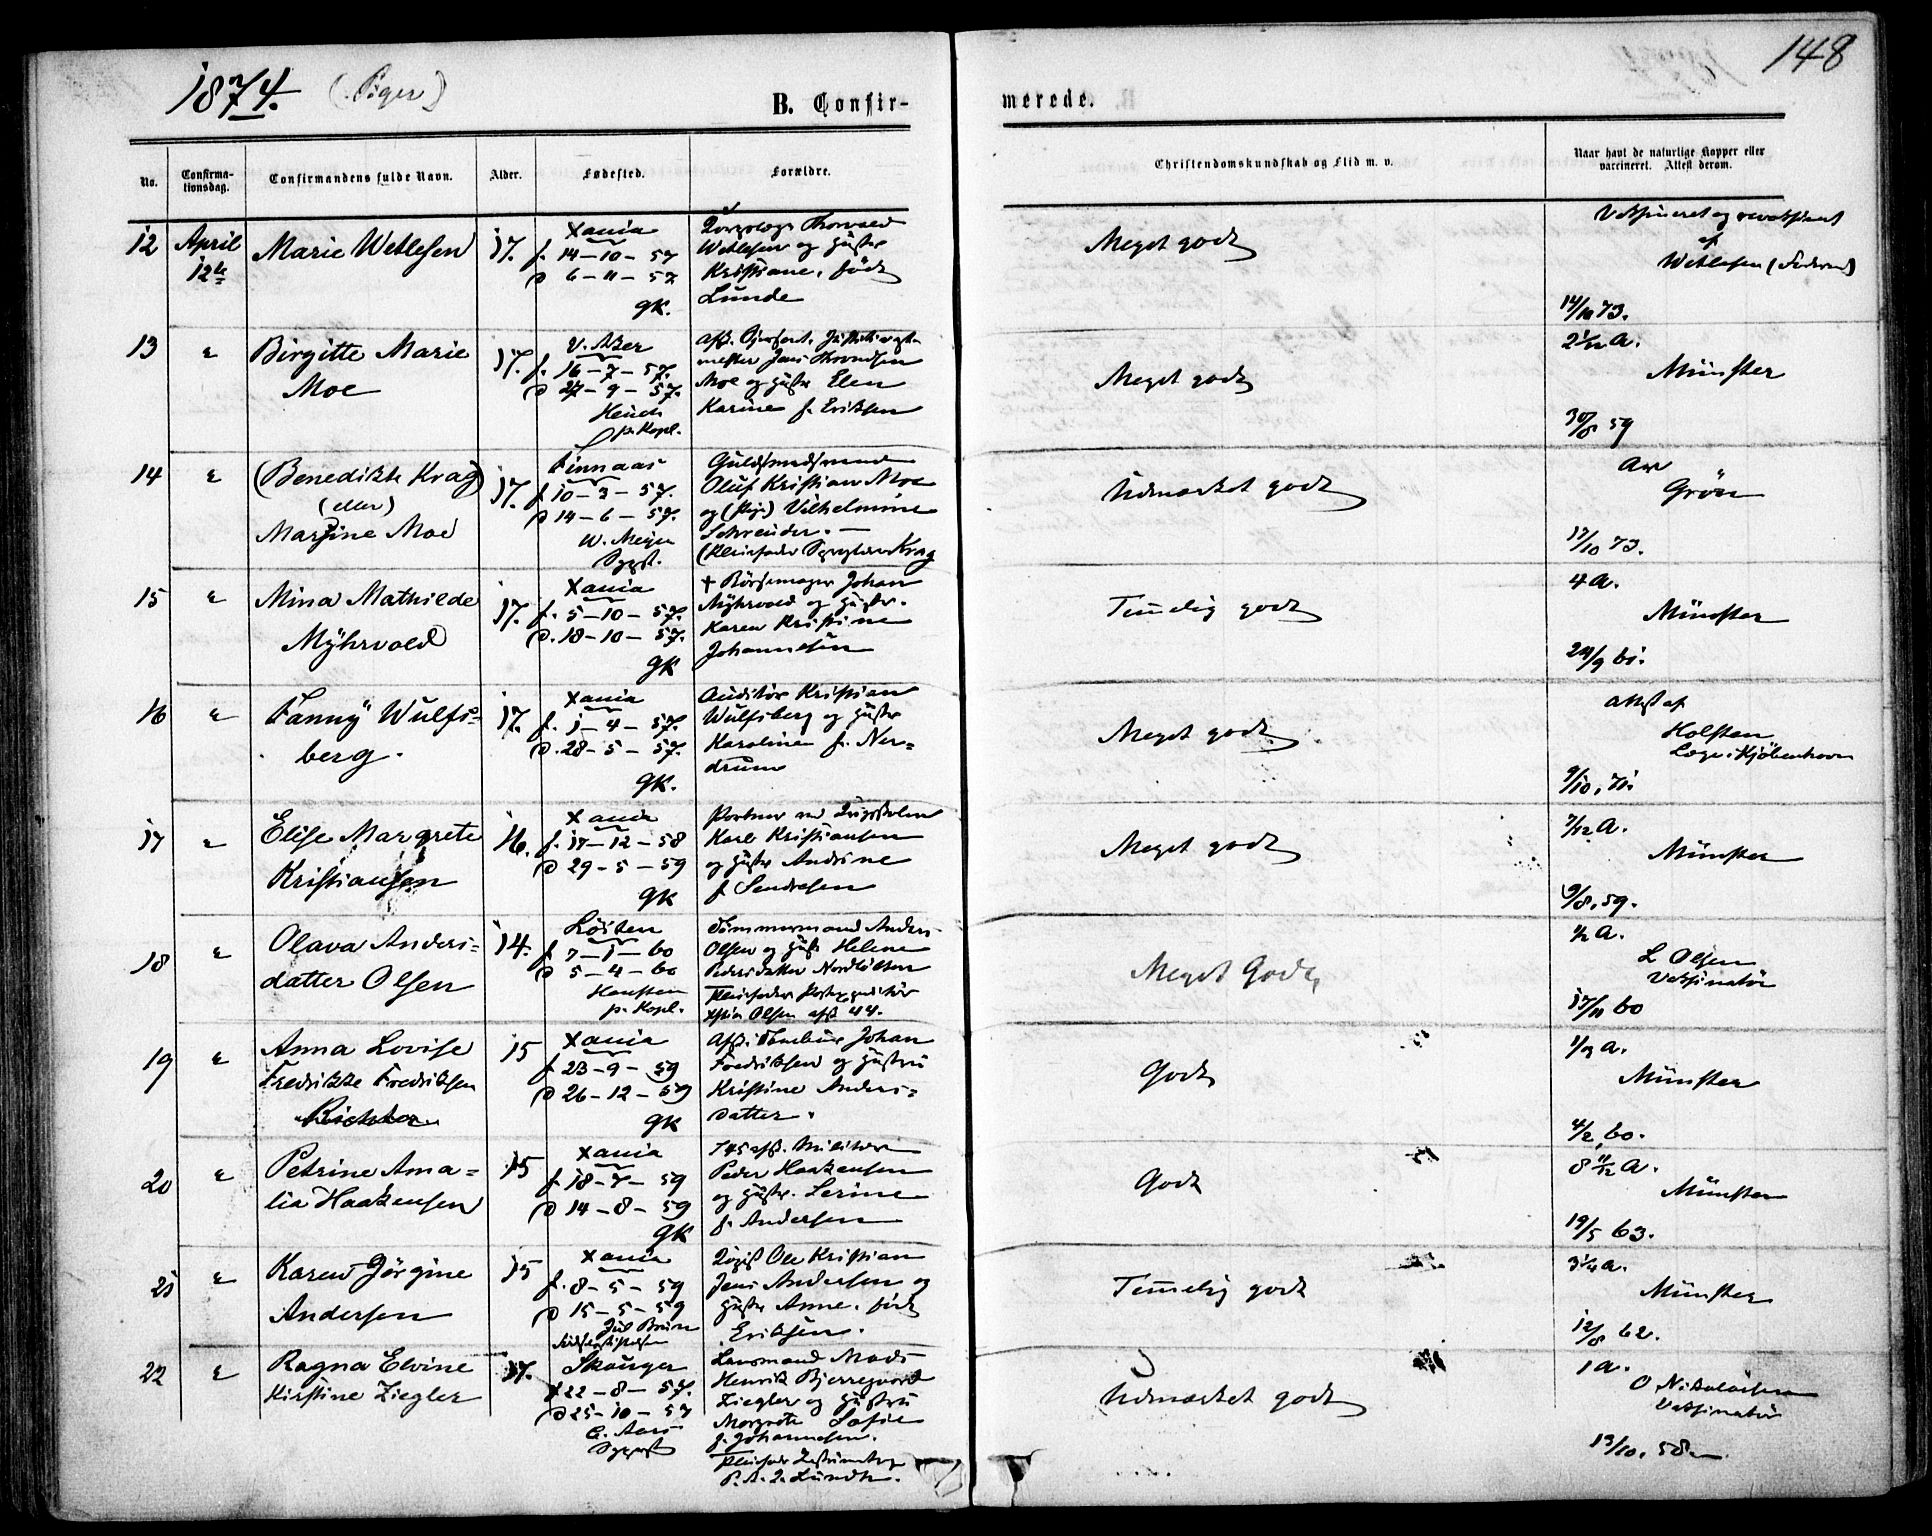 1874. (Piger)
148
B. Confir-
merede.
No.
Confirma-
tionsdag.
Confirmandens fulde Navn.
Alder.
Fødested.
Forældre.
Christendomskundskab og Flid m. v.
Naar havt de naturlige Kopper eller
vaccineret. Attest derom.
12 April 12te
Marie Wetlesen
17.
Xania
f. 14-10-57
d 6-11-57
gK.
Thorvald
Wetlesen og Hustr
Kristiane, født
Lunde
Meget godt
af
Wetlesen
14/10 73.
13 "
Birgitte Marie
Moe
17.
V. Aker
f. 16-7-57.
d 27-9-57.
Heuch
p. Kapl.
mester Jens
Moe og Hustr Elen
Karine f. Eriksen
Meget godt
2 1/12 A.
Münster
30/8 59
14 "
(Benedikte Krag)
(eller)
Martine Moe
17.
Finnaas
f 10-3-57.
d 14-6-57.
W. Meyer
Sgpst.
Guldsmedsvend
Oluf Kristian Moe
og (Pige) Vilhelmine
Schreuder.
Krag
Udmærket godt
Ar
Grön
17/10 73.
15 "
Mina Mathilde
Myhrvold
17.
Xania
f. 5-10-57.
d. 18-10-57.
gK
+ Børsemager Johan
Myhrvold og Hustr.
Karen Kristine
Johannesen
Temelig godt
4 A.
Münster
24/9 61.
16 "
Fanny Wulfs-
berg.
17.
Xania
f. 1-4-57.
d. 28-5-57.
gK.
Auditør Kristian
Wulfsberg og Hustr
Karoline f. Ner-
drum
Meget godt
attest af
Holsten
Læge i Kjøbenhavn
9/10, 71.
17 "
Elise Margrete
Kristiansen
16.
Xania
f. 17-12-58
d 29-5-59
gK
Portner ved
Karl Kristiansen
og Hustr Andrine
f
Meget godt
7/12 A.
Münster
9/8, 59.
18 "
Olava Anders-
datter Olsen
14.
Løiten
f 7-1-60
d 5-4-60
Hansteen
p. Kapl.
Tømmermand Anders
Olsen og Hustr Helene
Pedersdatter
Pleiefader Postexpeditør
Olsen afsk 44.
Meget Godt,
1/2 A.
L Olsen
Vaksinatør
17/11 60
19 "
Anna Lovise
Fredrikke Fredriksen
Richter.
15
Xania
f 23-9-59
d 26-12-59
gK
Afsk. Tambur Johan
Fredriksen og Hustru
Kristine Anders-
datter.
Godt
A.
Münster
4/2, 60.
20 "
Petrine Ama-
lia Haakensen
15
Xania
f 18-7-59
d 14-8-59
gK
145 afsk. Militær
Peder Haakensen
og Hustr. Serine
f. Andersen
Godt
8 11/12 A.
Münster
19/5 63.
21 "
Karen Jörgine
Andersen
15
Xania
f. 8-5-59
d 15-5-59
Jul Bruun
Ole Kristian
Jens Andersen og
Hustr Anne, født
Eriksen.
Temelig godt
3 1/4 A.
Münster
12/8 62.
22 "
Ragna Elvine
Kirstine Ziegler
17.
Skauger
f 22-8-57.
d 25-10-57
C. Aars
Sgpst
Lensmand Mads
Henrik Bjerregaard
Ziegler og Hustru
Margrete Sofie
f. Johannesen.
Udmærket godt
1 A.
O Nikolaisen
Vaksinatør
13/10, 58